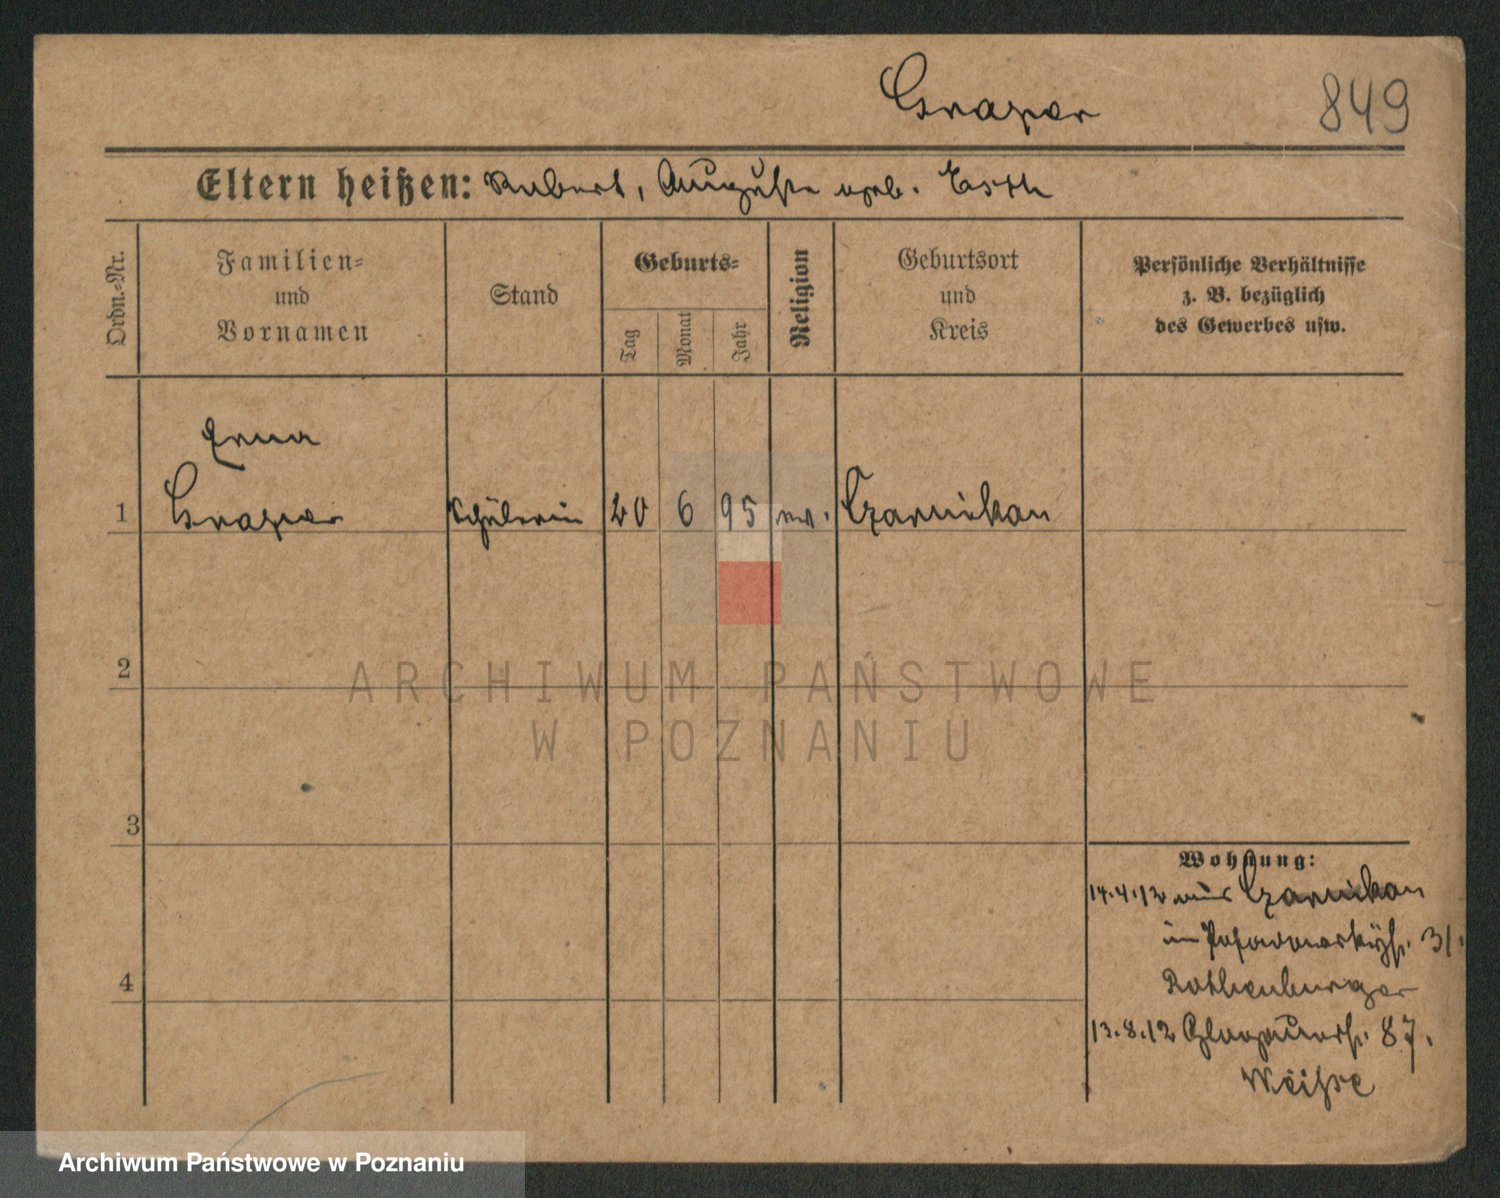 Graper
849
Eltern heißen: Robert, Auguste geb. Esth
Ordn.-Nr.
Familien-
und
Vornamen
Stand
Geburts-
Tag
Monat
Jahr
Religion
Geburtsort
und
Kreis
Persönliche Verhältnisse
z. B. bezüglich
des Gewerbes usw.
Erna
1 Graper Schülerin 20 6 95 ev. Czarnikau
2
3
4
Wohnung:
14.4.12 aus Czarnikau
in Posadowskystr. 31.
Rothenburger
13.8.12 Glogauerstr. 87.
Weiße
ARCHIWUM PAŃSTWOWE
W POZNANIU
Archiwum Państwowe w Poznaniu